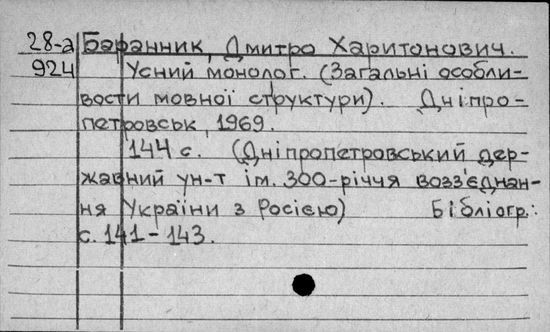 28-а Баранник, Дмитро Харитонович.
924 Усний монолог. (Загальні особли-
вости мовної структури). Дніпро-
петровськ, 1969.
144 с. (Дніпропетровський дер-
жавний ун-т ім. 300-річчя возз'єднан-
ня України з Росією) Бібліогр.:
с. 141-143.